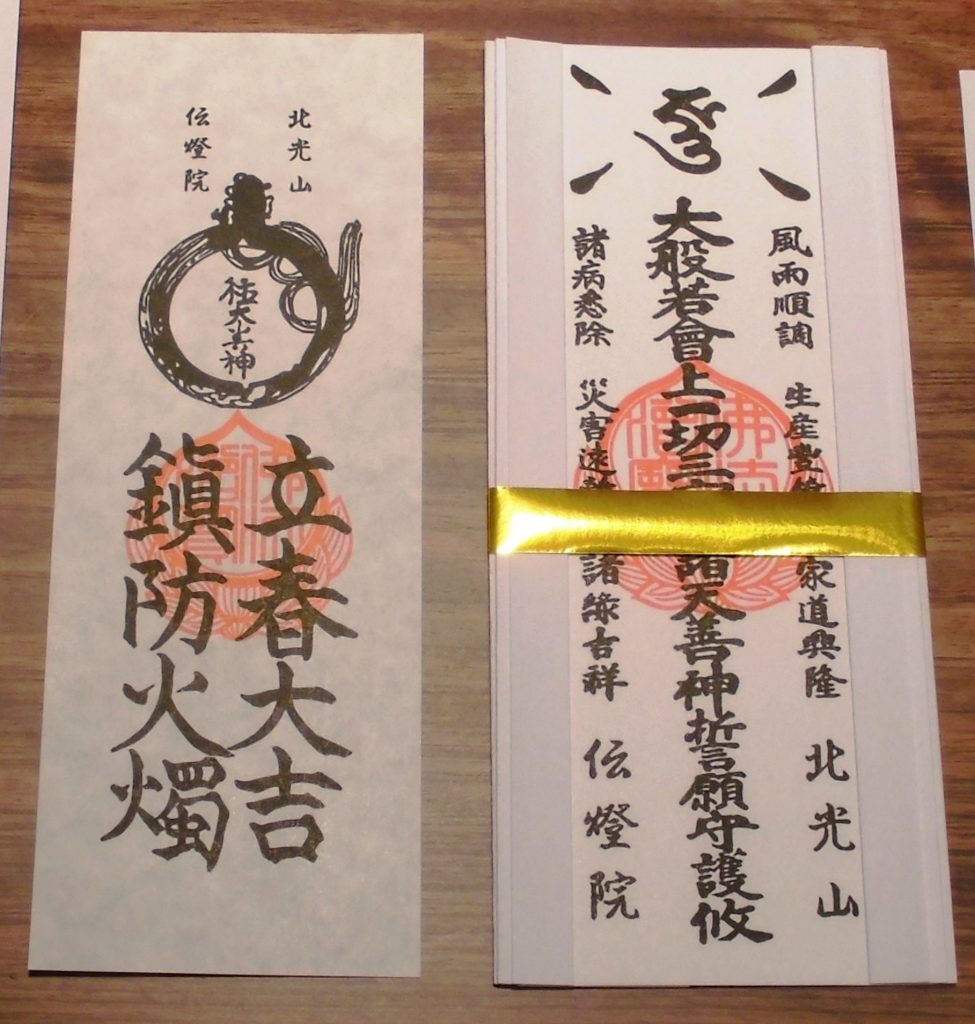 北光山
伝燈院
立春大吉
鎮防火燭
風雨順調 生産豊 家道興隆 北光山
大般若會上一切三 諸天善神誓願守護攸
諸病悉除 災害遠 諸縁吉祥 伝燈院